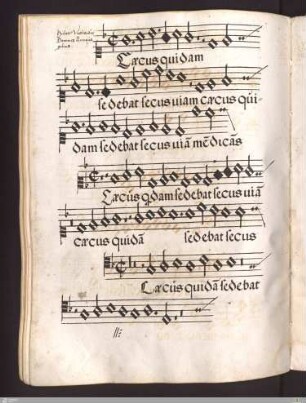 Cæcus quidam
sedebat secus viam cæcus qui
dam sedebat secus viã mẽdicãs
Cæcus qdam sedebat secus viã
cæcus quidã sedebat secus
Cæcus quidã sedebat